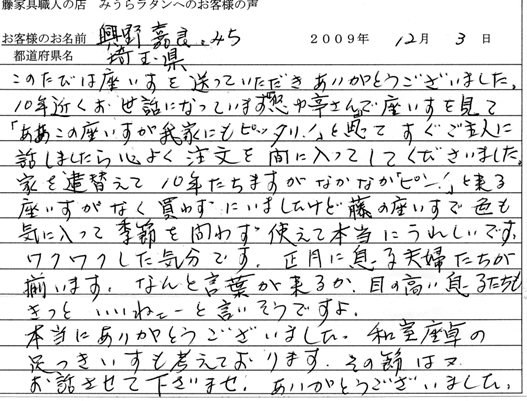 藤家具職人の店 みうらラタンへのお客様の声
お客様のお名前 興野 嘉良・みち 2009年 12月 3日
都道府県名 埼玉県
このたびは座いすを送っていただきありがとうございました。
10年近くお世話になっています 亭さんで座いすを見て
「ああこの座いすが我家にもピッタリ!」と思って すぐご主人に
話しましたら心よく 注文を間に入ってしてくださいました。
家を建替えて 10年たちますがなかなか「ピン!」と来る
座いすがなく買わずにいましたけど藤の座いすで色も
気に入って季節を問わず使えて本当にうれしいです。
ワクワクした気分です。正月に息子夫婦たちが
揃います。なんと言葉が来るか、目の高い息子たちも
きっと いいねぇーと言いそうですよ。
本当にありがとうございました。和室座卓の
足つきいすも考えております。その節は又
お話させて下さいませ。ありがとうございました。